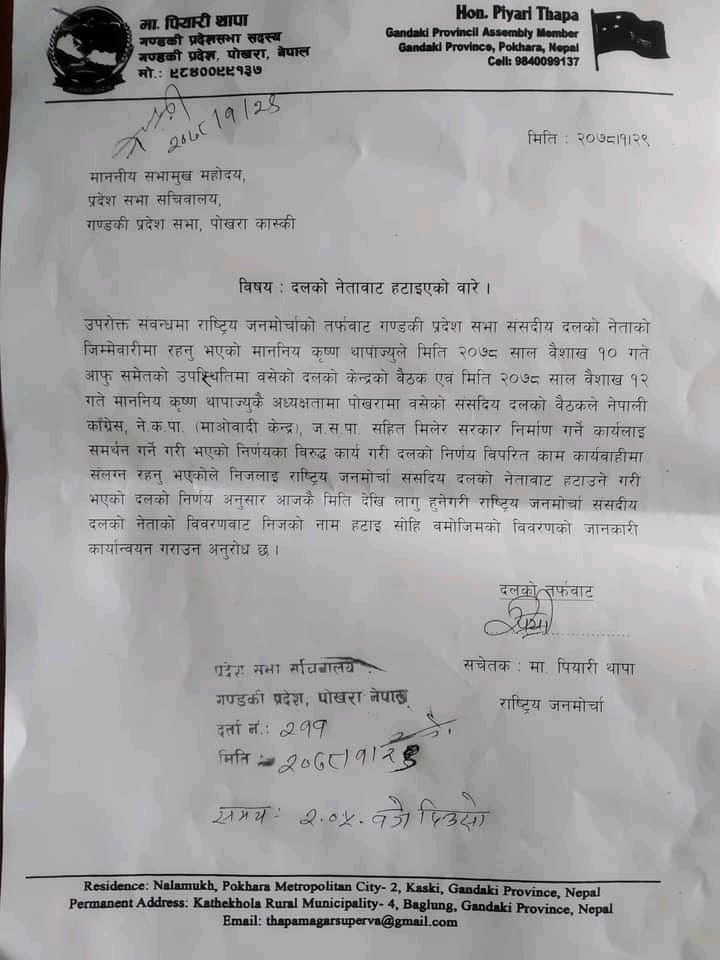 मा. पियारी थापा
गण्डकी प्रदेशसभा सदस्य
गण्डकी प्रदेश, पोखरा, नेपाल
मो.: ९८४००९९१३७
Hon. Piyari Thapa
Gandaki Provincil Assembly Member
Gandaki Province, Pokhara, Nepal
Cell: 9840099137
२०७८/१/२९
मिति : २०७८।१।२९
माननीय सभामुख महोदय,
प्रदेश सभा सचिवालय,
गण्डकी प्रदेश सभा, पोखरा कास्की
विषय : दलको नेतावाट हटाइएको वारे ।
उपरोक्त संवन्धमा राष्ट्रिय जनमोर्चाको तर्फवाट गण्डकी प्रदेश सभा संसदीय दलको नेताको
जिम्मेवारीमा रहनु भएको माननिय कृष्ण थापाज्युले मिति २०७८ साल वैशाख १० गते
आफु समेतको उपस्थितिमा वसेको दलको केन्द्रको वैठक एवं मिति २०७८ साल वैशाख १२
गते माननिय कृष्ण थापाज्युकै अध्यक्षतामा पोखरामा वसेको संसदिय दलको वैठकले नेपाली
काँग्रेस, ने.क.पा. (माओवादी केन्द्र), ज.स.पा. सहित मिलेर सरकार निर्माण गर्ने कार्यलाइ
समर्थन गर्ने गरी भएको निर्णयका विरुद्ध कार्य गरी दलको निर्णय विपरित काम कार्यवाहीमा
संलग्न रहनु भएकोले निजलाइ राष्ट्रिय जनमोर्चा संसदिय दलको नेतावाट हटाउने गरी
भएको दलको निर्णय अनुसार आजकै मिति देखि लागु हुनेगरी राष्ट्रिय जनमोर्चा संसदीय
दलको नेताको विवरणवाट निजको नाम हटाइ सोहि वमोजिमको विवरणको जानकारी
कार्यान्वयन गराउन अनुरोध छ ।
दलको तर्फवाट
सचेतक : मा. पियारी थापा
राष्ट्रिय जनमोर्चा
प्रदेश सभा सचिवालय
गण्डकी प्रदेश, पोखरा नेपाल
दर्ता नं.: २११
मिति :- २०७८/१/२९
समय: २.०५ वजे दिउसो
Residence: Nalamukh, Pokhara Metropolitan City- 2, Kaski, Gandaki Province, Nepal
Permanent Address: Kathekhola Rural Municipality- 4, Baglung, Gandaki Province, Nepal
Email: thapamagarsuperva@gmail.com